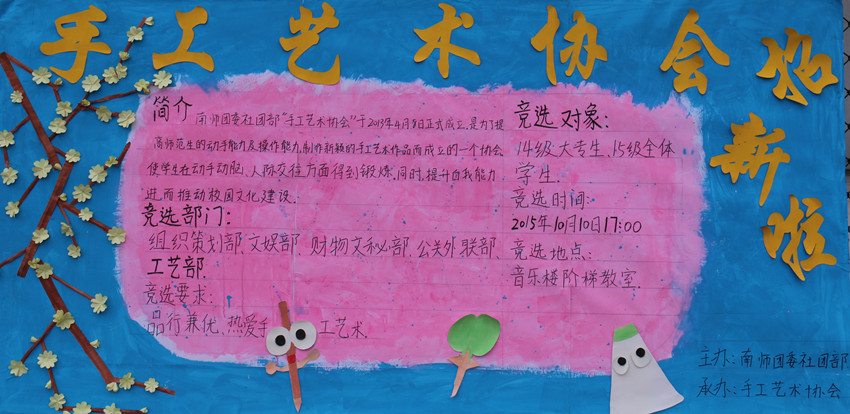 手工艺术协会招
新啦
简介 南师团委社团部“手工艺术协会”于2013年4月8日正式成立,是为了提
高师范生的动手能力及操作能力,制作新颖的手工艺术作品而成立的一个协会.
使学生在动手动脑、人际交往方面得到锻炼.同时,提升自我能力,
进而推动校园文化建设.
竞选部门:
组织策划部、文娱部、财物文秘部、公关外联部、
工艺部.
竞选要求:
品行兼优、热爱手工艺术.
竞选对象:
14级大专生、15级全体
学生.
竞选时间:
2015年10月10日17:00
竞选地点:
音乐楼阶梯教室.
主办:南师团委社团部
承办:手工艺术协会